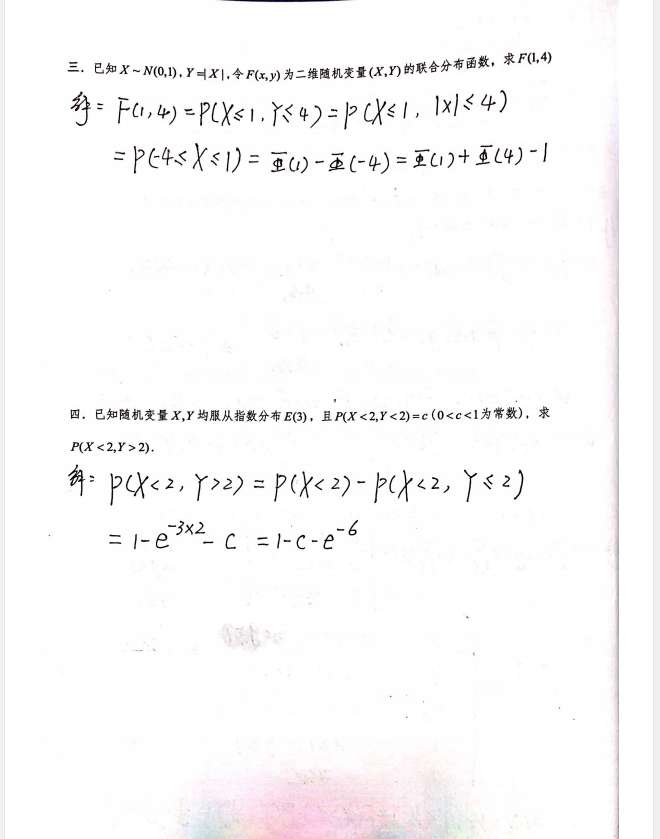 三．已知 X ~ N(0,1)，Y =|X|，令 F(x,y) 为二维随机变量 (X,Y) 的联合分布函数，求 F(1,4)
解: F(1,4) = P(X≤1, Y≤4) = P(X≤1, |X|≤4)
= P(-4≤X≤1) = Φ(1) - Φ(-4) = Φ(1) + Φ(4) - 1
四．已知随机变量 X,Y 均服从指数分布 E(3)，且 P(X<2,Y<2)=c (0<c<1为常数)，求
P(X<2,Y>2).
解: P(X<2, Y>2) = P(X<2) - P(X<2, Y≤2)
= 1-e^{-3×2} - c = 1-c-e^{-6}